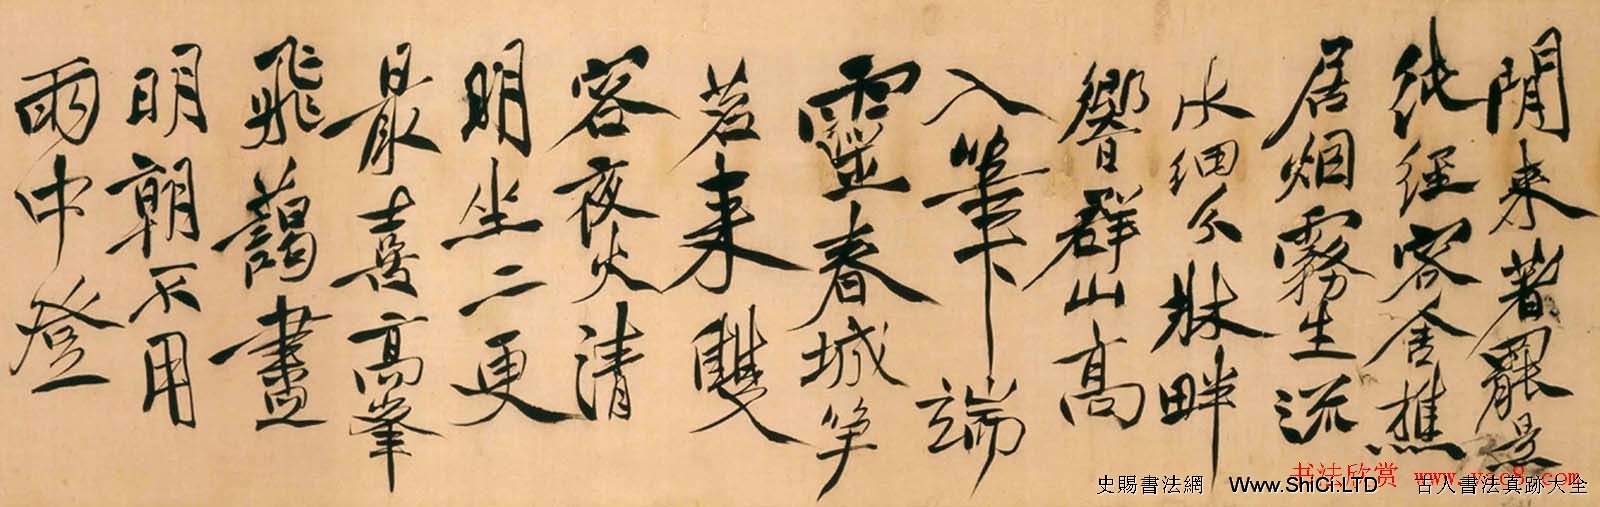 閒来著罷是
純經客舍樵
居烟霧生流
水細分牀畔
響群山高
入筆下端
靈春城争
茗来雙
客夜火清
明坐二更
最喜高峯
飛藹畫
明朝不用
雨中登
书法欣赏 www.yac8.com
史賜書法網 Www.ShiCi.LTD 古人書法真跡大全